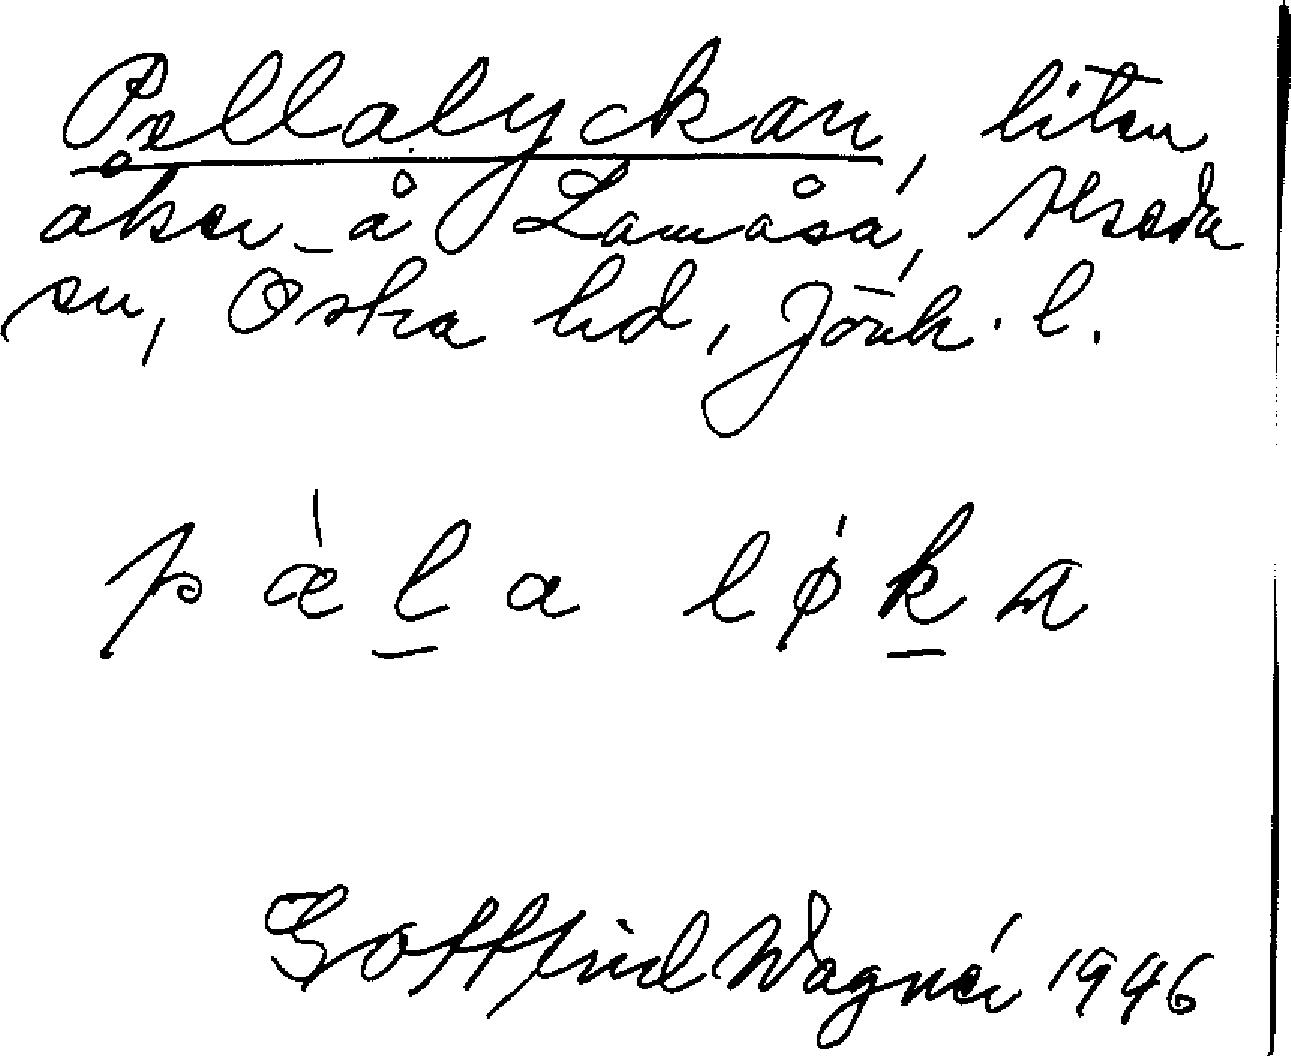 Pellalyckan, liten
åker å Lamåsa, Alseda
sn, Östra hd, Jönk. l.
pæ̀la løka
Gottfrid Wagnér 1946